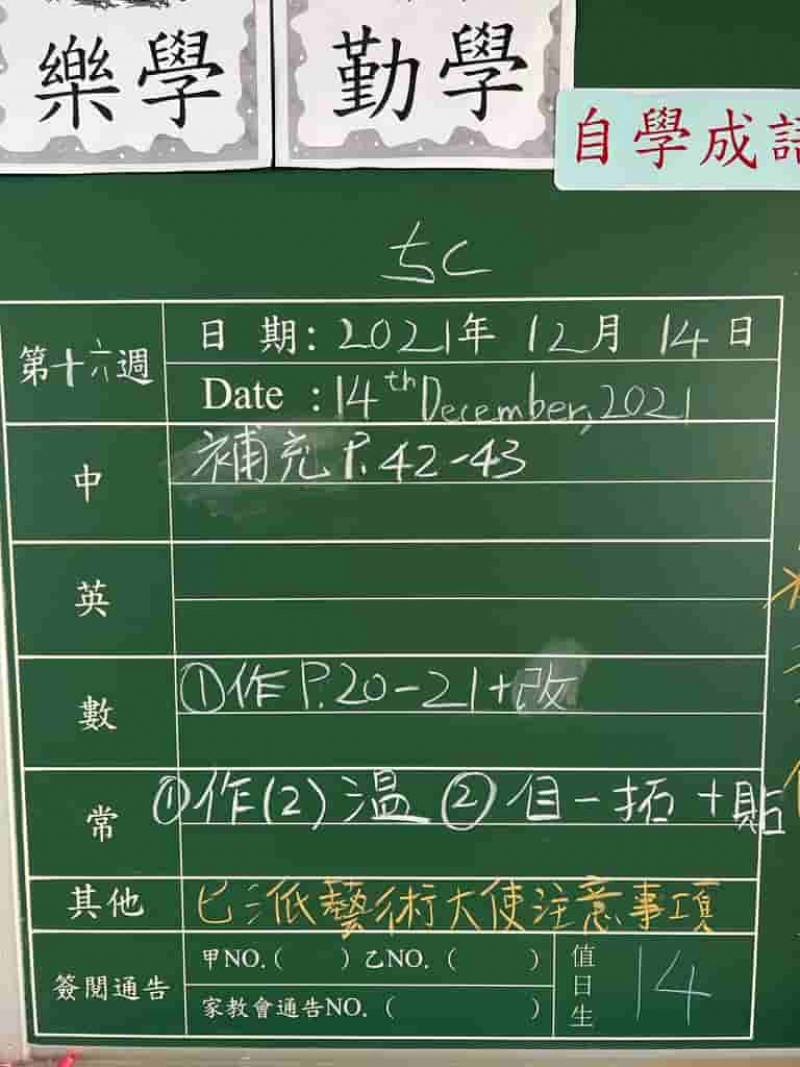 樂學
勤學
自學成語
5C
第十六週
日 期: 2021年 12月 14日
Date : 14th December, 2021
中
補充 P.42-43
英
數
①作P.20-21+改
常
①作(2)溫 ②自一拓+貼
其他
已派藝術大使注意事項
簽閱通告
甲NO. ( ) 乙NO. ( )
家教會通告NO. ( )
值日生
14